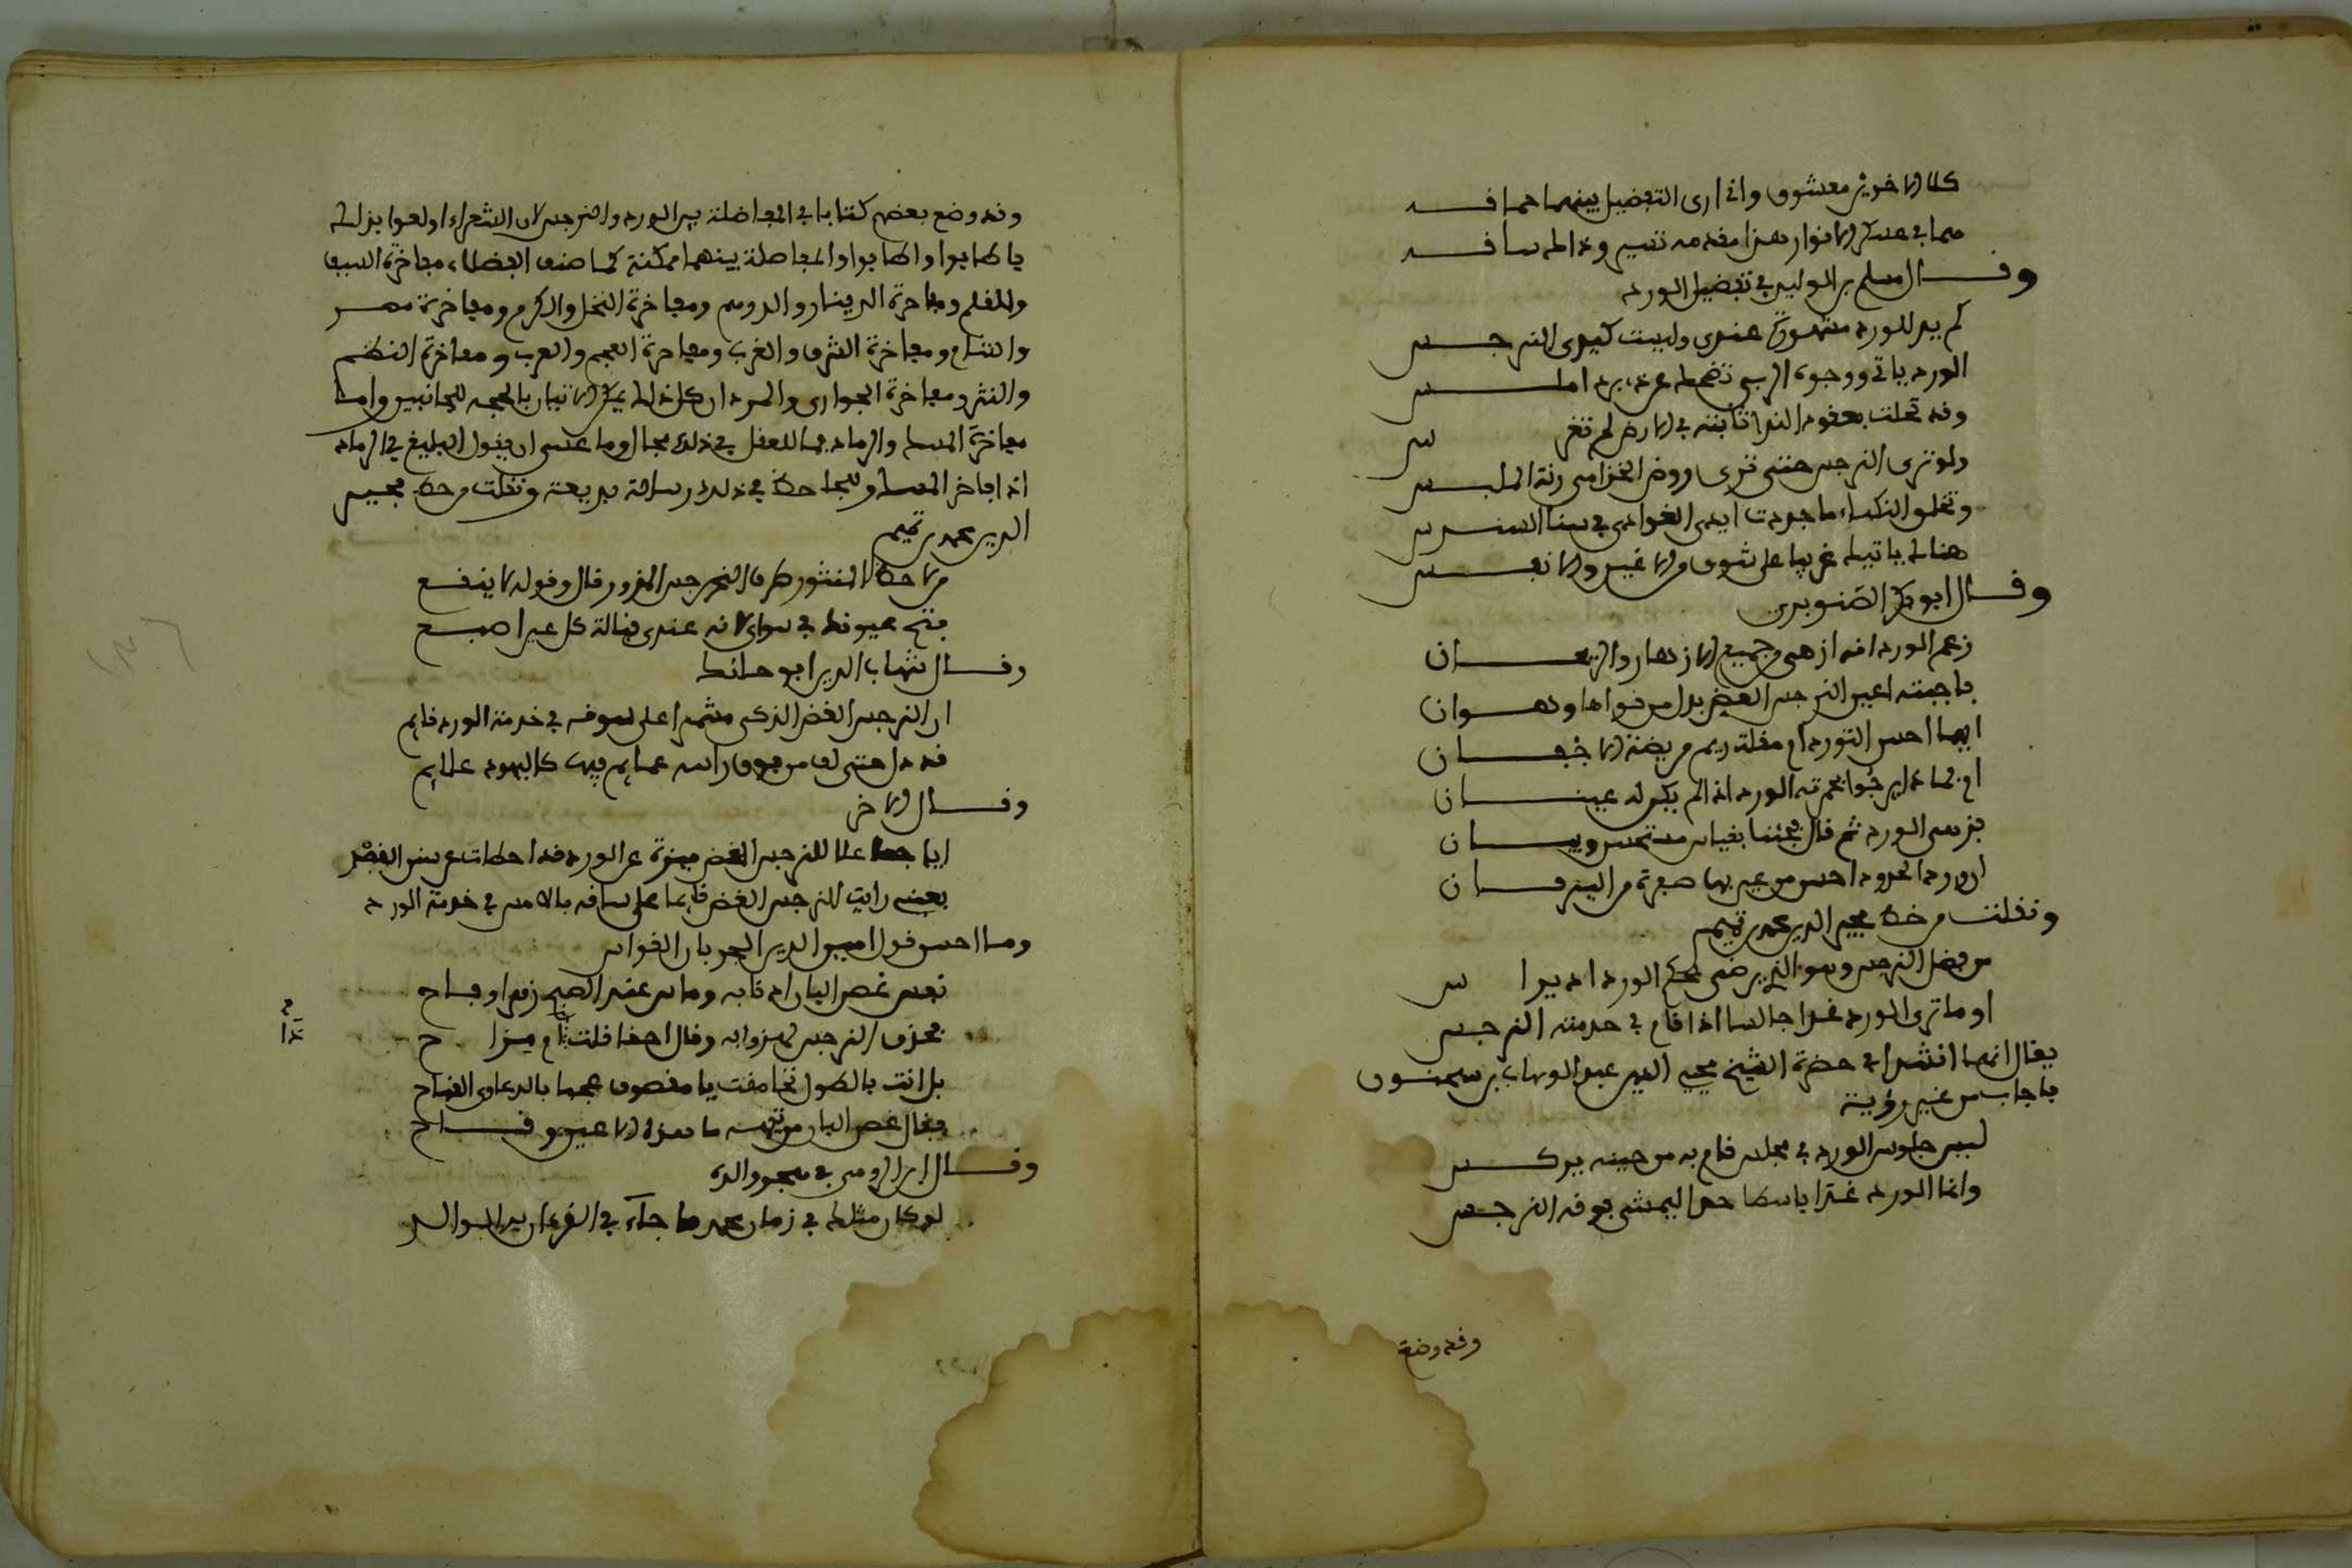 كلا الاخوين معشوق واني ارى التفضيل بينهما حماقه
هما في عسكر الانوار هذا مقدمه تسير وذاك ساقه
وقال مسلم بن الوليد في تفضيل الورد
كم يد للورد مشهورة عندي وليست كيدي النرجس
الورد ياتي ووجوه الربى تضحك عن ذي برد املس
وقد تحلت بعقود الندا نابتة في الارض لم تغرس
ولو ترى النرجس حتى ترى روض الخزامى رثة الملبس
وتخلو النكباء ما جددت ايدي الغوادي في سنا السندس
هناك ياتيك غريبا على شوق من الاعين والانفس
وقال ابو بكر الصنوبري
زعم الورد انه ازهى من جميع الازهار والريحان
فاجبته اعين النرجس الغض بذل من قولها وهوان
ايما احسن التورد ام مقلة ريم مريضة الاجفان
ام بماذا يرجو بحمرته الورد اذا لم يكن له عينان
فزهى الورد ثم قال مجيبا بقياس مستحسن وبيان
ان ورد الخدود احسن من عين بها صفرة من اليرقان
ونقلت من خط مجير الدين محمد بن تميم
من فضل النرجس وهو الذي يرضى بحكم الورد اذ يراس
او ما ترى الورد غدا جالسا اذا قام في خدمته النرجس
يقال انهما انشدا في حضرة الشيخ محيي الدين عبد الوهاب بن سحنون
فاجاب من غير روية
ليس جلوس الورد في مجلس قام به من حينه نرجس
وانما الورد غدا باسطا خدا ليمشي فوقه النرجس
وقد وضع
وقد وضع بعضهم كتابا في المفاضلة بين الورد والنرجس لان الشعراء اولعوا بذلك
فاطابوا واطابوا والمفاضلة بينهما ممكنة كما صنف الفضلاء مفاخرة السيف
والقلم ومفاخرة الدينار والدرهم ومفاخرة النخل والكرم ومفاخرة مصر
والشام ومفاخرة الشرق والغرب ومفاخرة العجم والعرب ومفاخرة النظم
والنثر ومفاخرة الجواري والمرد ان كل ذلك يمكن الاتيان بالحجة للجانبين واما
مفاخرة المسك والرماد فما للعقل في ذلك مجال وما عسى ان يقول البليغ في الرماد
اذا فاخر المسك وللجاحظ في ذلك رسالة بديعة ونقلت من خط مجير
الدين محمد بن تميم
من لاحظ المنثور طرف النرجس المزور قال وقوله لا يدفع
فتح عيونك في سواي لانه عندي قبالة كل عين اصبع
وقال شهاب الدين ابو
ان النرجس الغض الذكي مشمرا على سوقه في خدمة الورد قايم
وقد ذل حتى لف من فوق راسه عمايم فيها كاليهود علايم
وقال الاخر
ايا جاعلا للنرجس الغض ميزة على الورد قد اخطات عن سنن القصد
بعيني رايت النرجس الغض قايما على ساقه بالامس في خدمة الورد
وما احسن قول امين الدين الجوبان القواس
تعس غصن البان اذ تاه وماس عند الصبح زهوا وفاح
فحدق النرجس يهزوا به وقال احقا قلت ام مزاح
بل انت بالطول تحامقت يا مقصوف عجبا بالدعاوى القباح
فقال غصن البان من تيهه ما هذه الا عيون وقاح
وقال ابن الرومي في هجو والده
لو كان مثلك في زمان محمد ما جاء في القرءان بر الوالد